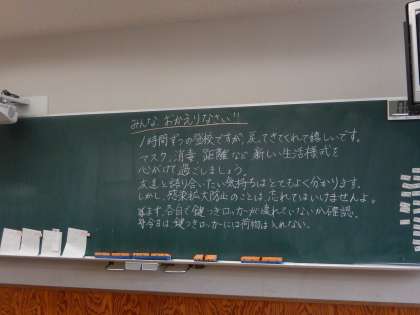 みんな、おかえりなさい!!
1時間ずつの登校ですが、戻ってきてくれて嬉しいです。
マスク、消毒、距離など新しい生活様式を
心がけて過ごしましょう。
友達と語り合いたい気持ちはとてもよく分かります。
しかし、感染拡大防止のことは、忘れてはいけませんよ。
まず、各自で鍵つきロッカーが壊れていないか確認。
今日は鍵つきロッカーには荷物は入れない。